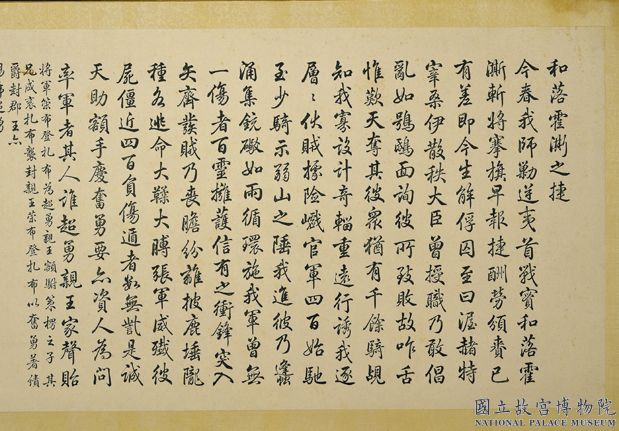 和落霍澌之捷
今春我師勒逆夷首戰寔和落霍
澌斬將搴旗早報捷酬勞頒賚已
有差即今生解俘囚至曰渥赭特
宰桑伊散秩大臣曾授職乃敢倡
亂如鴞鴟面詢彼所致敗故咋舌
惟歎天奪其彼衆猶有千餘騎覘
知我寡設計奇輜重遠行誘我逐
層〻伏賊據險巇官軍四百始馳
至少騎示弱山之陲我進彼乃蠭
涌集銃礮如雨循環施我軍曾無
一傷者百靈擁護信有之衝鋒突入
矢齊發賊乃喪膽紛離披鹿埵隴
種各逃命大鞣大膊張軍威殲彼
屍僵近四百負傷遁者數無訾是誠
天助額手慶奮勇要亦資人為問
率軍者其人誰超勇親王家聲貽
將軍策布登扎布為超勇親王額駙策楞之子其
兄成衮扎布襲封親王策布登扎布以奮勇著績
爵封郡王亦
國立故宮博物院
NATIONAL PALACE MUSEUM